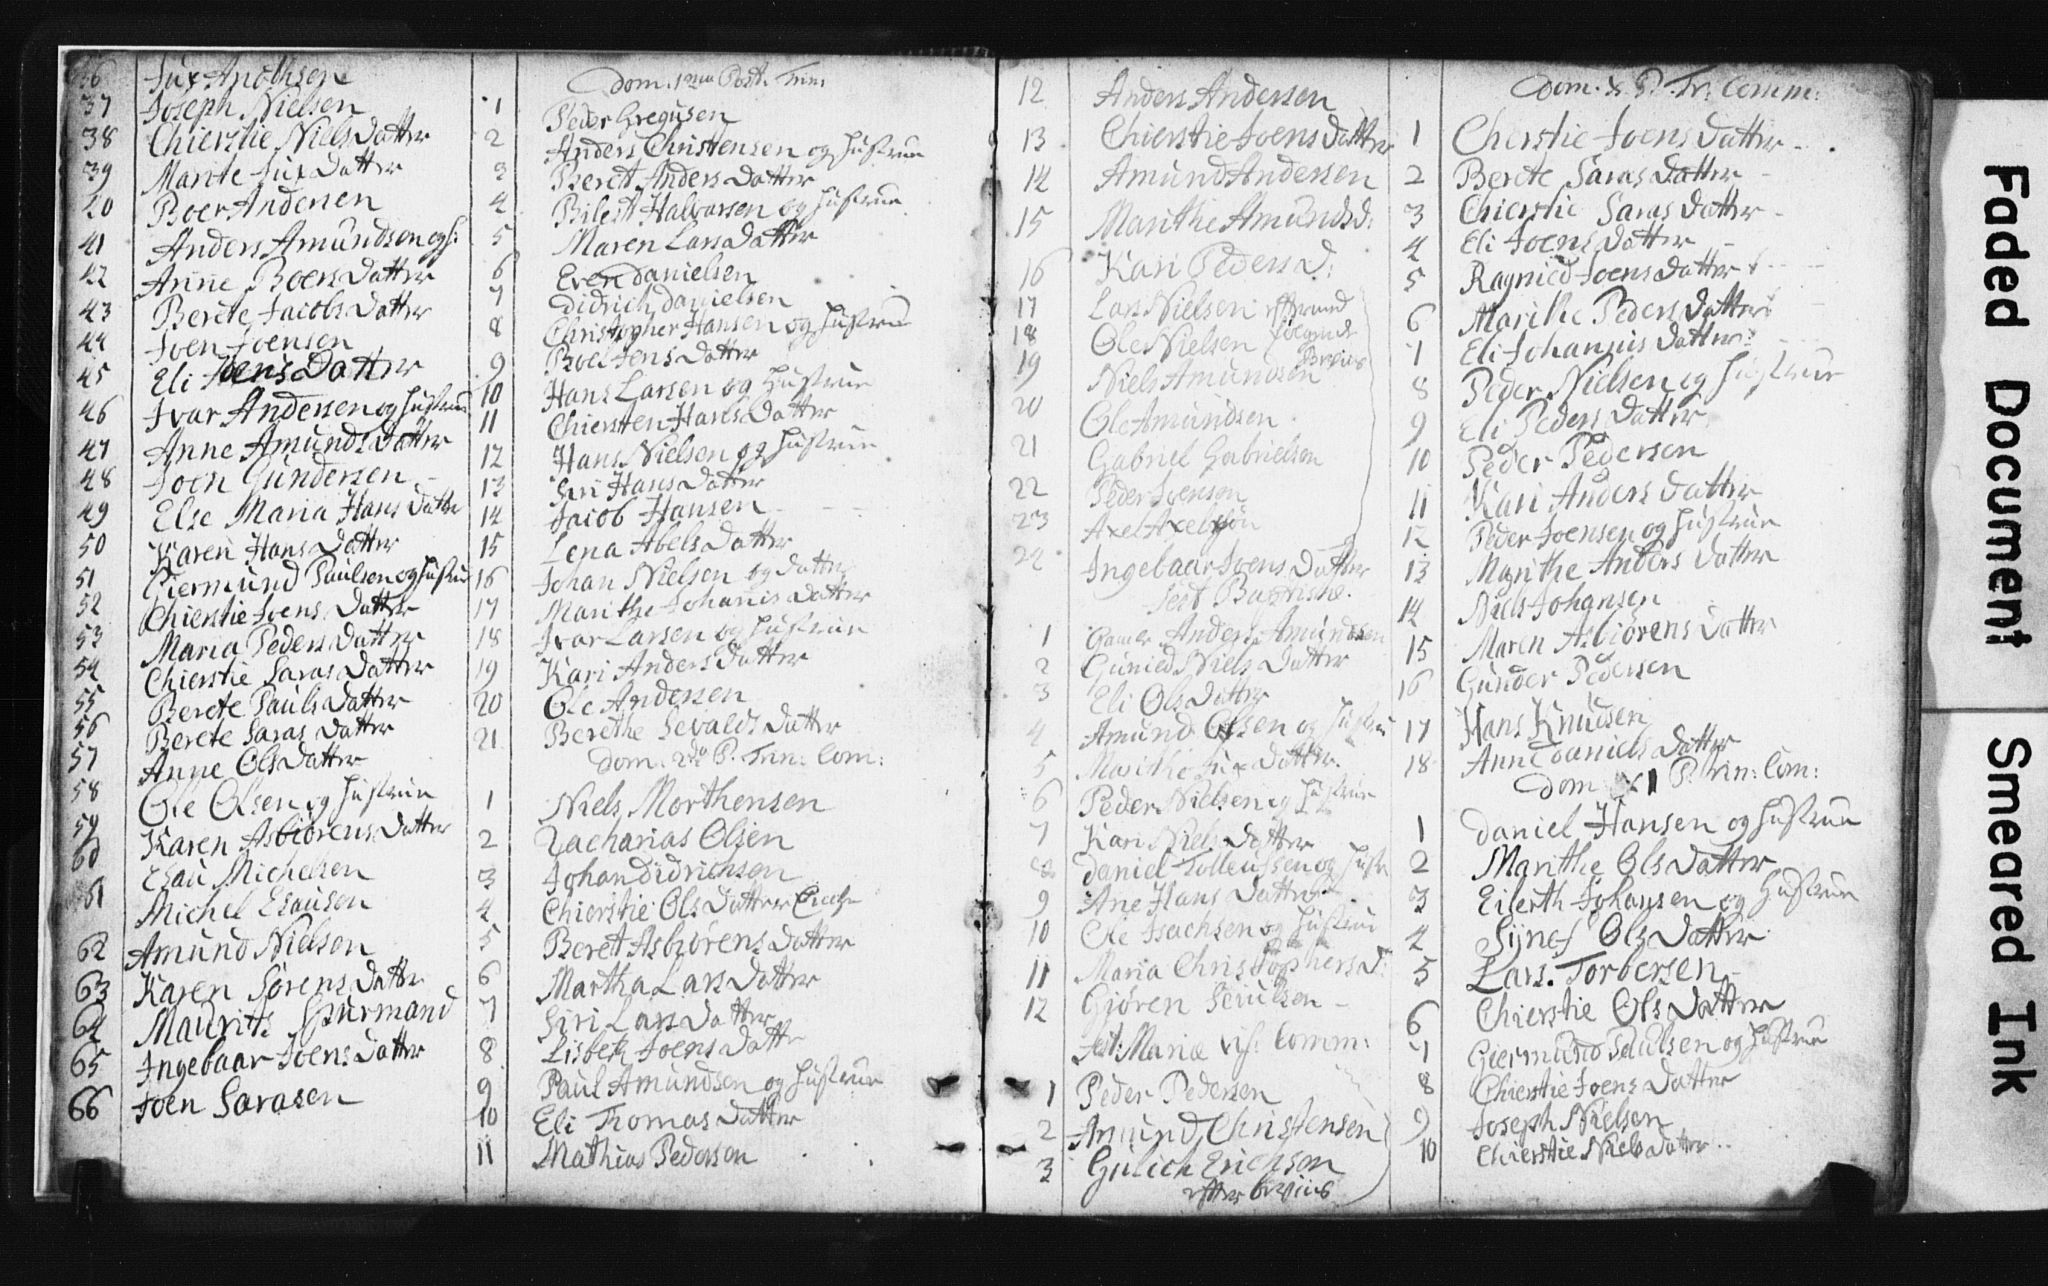 36 Jux Anothsen
37 Joseph Nielsen
38 Chierstie Niels Datter
39 Marite Jux Datter
40 Boer Andersen
41 Anders Amundsen og h:
42 Anne Boers Datter
43 Berete Jacobs Datter
44 Joen Joensen
45 Eli Joens Datter
46 Ivar Andersen og Hustrue
47 Anne Amunds Datter
48 Joen Gundersen
49 Else Maria Hans Datter
50 Karen Hans Datter
51 Giermund Paulsen og Hustrue
52 Chierstie Joens Datter
53 Maria Peders Datter
54 Chierstie Saras Datter
55 Berete Pauls Datter
56 Berete Saras Datter
57 Anne Ols Datter
58 Ole Olsen og Hustrue
59 Karen Asbiørens Datter
60 Esau Michelsen
61 Michel Esausen
62 Amund Nielsen
63 Karen Sørens Datter
64 Maurits
65 Ingebaar Joens Datter
66 Joen Sarasen
Dom. 1ma Post. Trin:
1 Peder Gregusen
2 Anders Christensen og Hustrue
3 Beret Anders Datter
4 Bilest Halvorsen og Hustrue
5 Maren Lars Datter
6 Even Danielsen
7 Didrich Danielsen
8 Christopher Hansen og Hustrue
9 Boel Jens Datter
10 Hans Larsen og Hustrue
11 Chiersten Hans Datter
12 Hans Nielsen og Hustrue
13 Siri Hans Datter
14 Jacob Hansen
15 Lena Abels Datter
16 Johan Nielsen og Datter
17 Marithe Johanis Datter
18 Ivar Larsen og Hustrue
19 Kari Anders Datter
20 Ole Andersen
21 Berethe Sevalds Datter
Dom. 2da P. Trin: Com:
1 Niels Morthensen
2 Zacharias Olsen
3 Johan Didrichsen
4 Chierstie Ols Datter Enche
5 Beret Asbiørens Datter
6 Martha Lars Datter
7 Siri Lars Datter
8 Lisbeth Joens Datter
9 Paul Amundsen og Hustrue
10 Eli Thomas Datter
11 Mathias Pederson
12 Anders Andersen
13 Chierstie Joens Datter
14 Amund Andersen
15 Marithe Amundsd:
16 Kari Pedersd:
17 Lars Nielsen
18 Ole Nielsen følgende
19 Niels Amundsen
20 Ole Amundsen
21 Gabriel Gabrielsen
22 Peder Joensen
23 Axel Axelsøn
24 Ingebaar Joens Datter
Fest
1 Gamer Anders Amundsen
2 Gunied Niels Datter
3 Eli Ols Datter
4 Amund Olsen og Hustru
5 Marithe Jux Datter
6 Peder Nielsen og Hustrue
7 Kari Niels Datter
8 Daniel Tolleufsen og Hustr
9 Ane Hans Datter
10 Ole Isachsen og Hustrue
11 Maria Christophersd:
12 Gjøren
Fest: Mariæ vis: Comm:
1 Peder Pedersen
2 Amund Christensen
3 Gulich Erichsen
efter beviis
Dom. X. P. Tr: Comm:
1 Cherstie Joens Datter
2 Berete Saras Datter
3 Chierstie Saras Datter
4 Eli Joens Datter
5 Ragnied Joens Datter
6 Marithe Peders Datter
7 Eli Johannis Datter
8 Peder Nielsen og Hustrue
9 Eli Peders Datter
10 Peder Pedersen
11 Kari Anders Datter
12 Peder Joensen og Hustrue
13 Marithe Anders Datter
14 Niels Johansen
15 Maren Asbiørens Datter
16 Gunder Pedersen
17 Hans Knudsen
18 Anne Daniels Datter
Dom XI P. Trin: Com:
1 Daniel Hansen og Hustrue
2 Marithe Ols Datter
3 Eilerth Johansen og Hustrue
4 Synef Ols Datter
5 Lars Torbersen
6 Chierstie Ols Datter
7 Giermund Paulsen og Hustrue
8 Chierstie Joens Datter
9 Joseph Nielsen
10 Chierstie Niels Datter
Faded Document
Smeared Ink